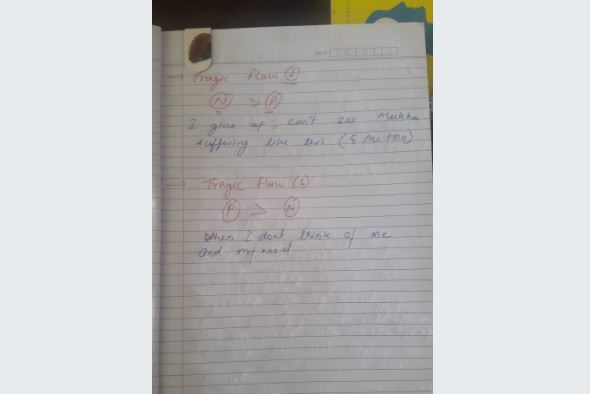 DATE
→ Tragic flaw (2)
N > P
I give up, can't see
suffering like this (& me too)
→ Tragic Flaw (3)
P > N
When I dont think of me
and my need